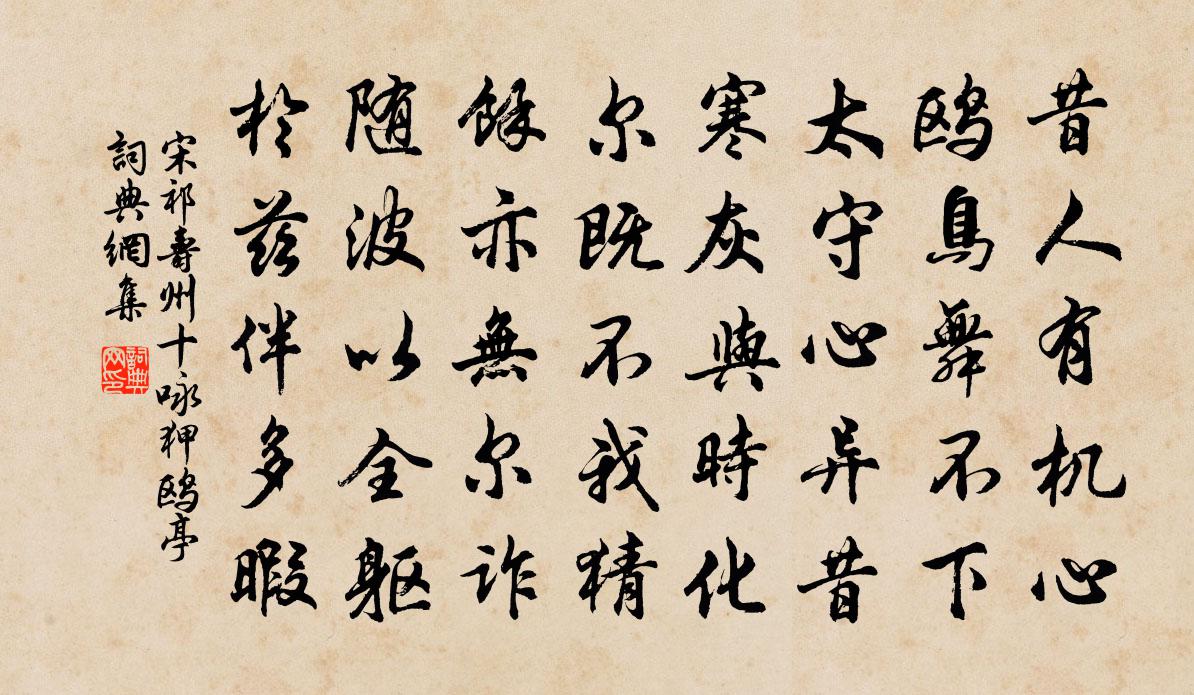 昔人有机心
鸥鳥舞不下
太守心异昔
寒灰與時化
尔既不我猜
餘亦無尔诈
随波以全躯
於兹伴多暇
宋祁壽州十咏狎鸥亭
詞典網集
詞典网印